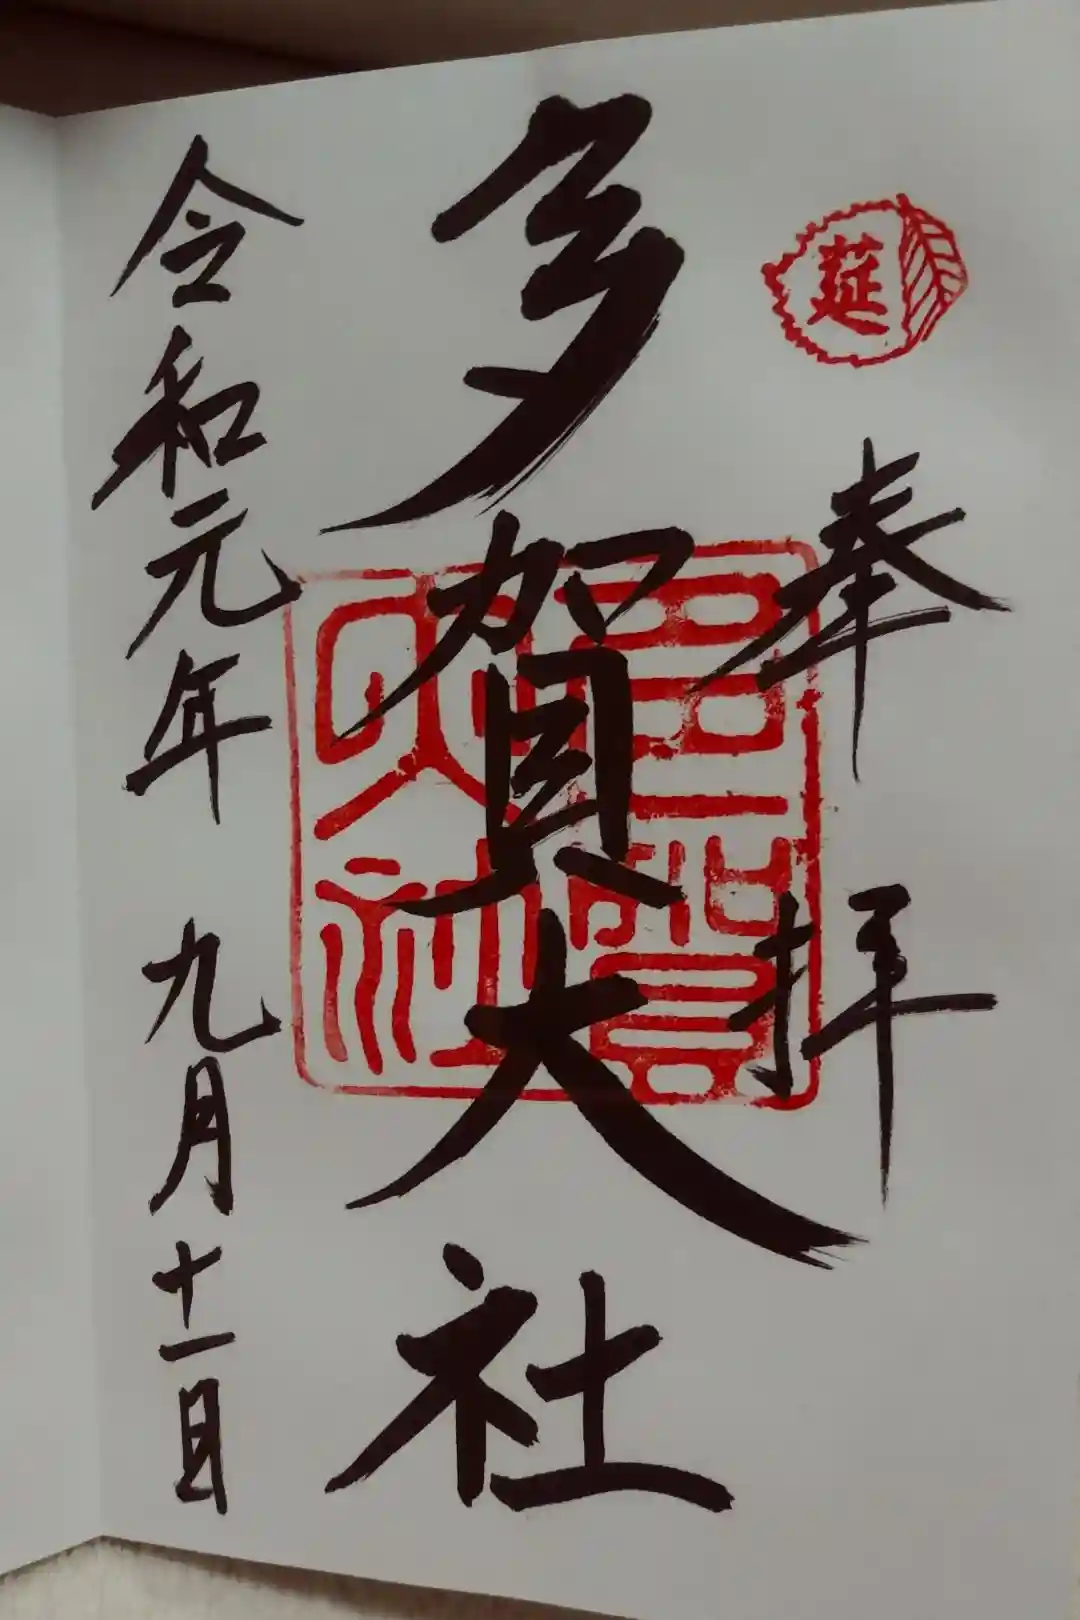 莚
奉拝
多賀大社
多賀大社
令和元年 九月十一日